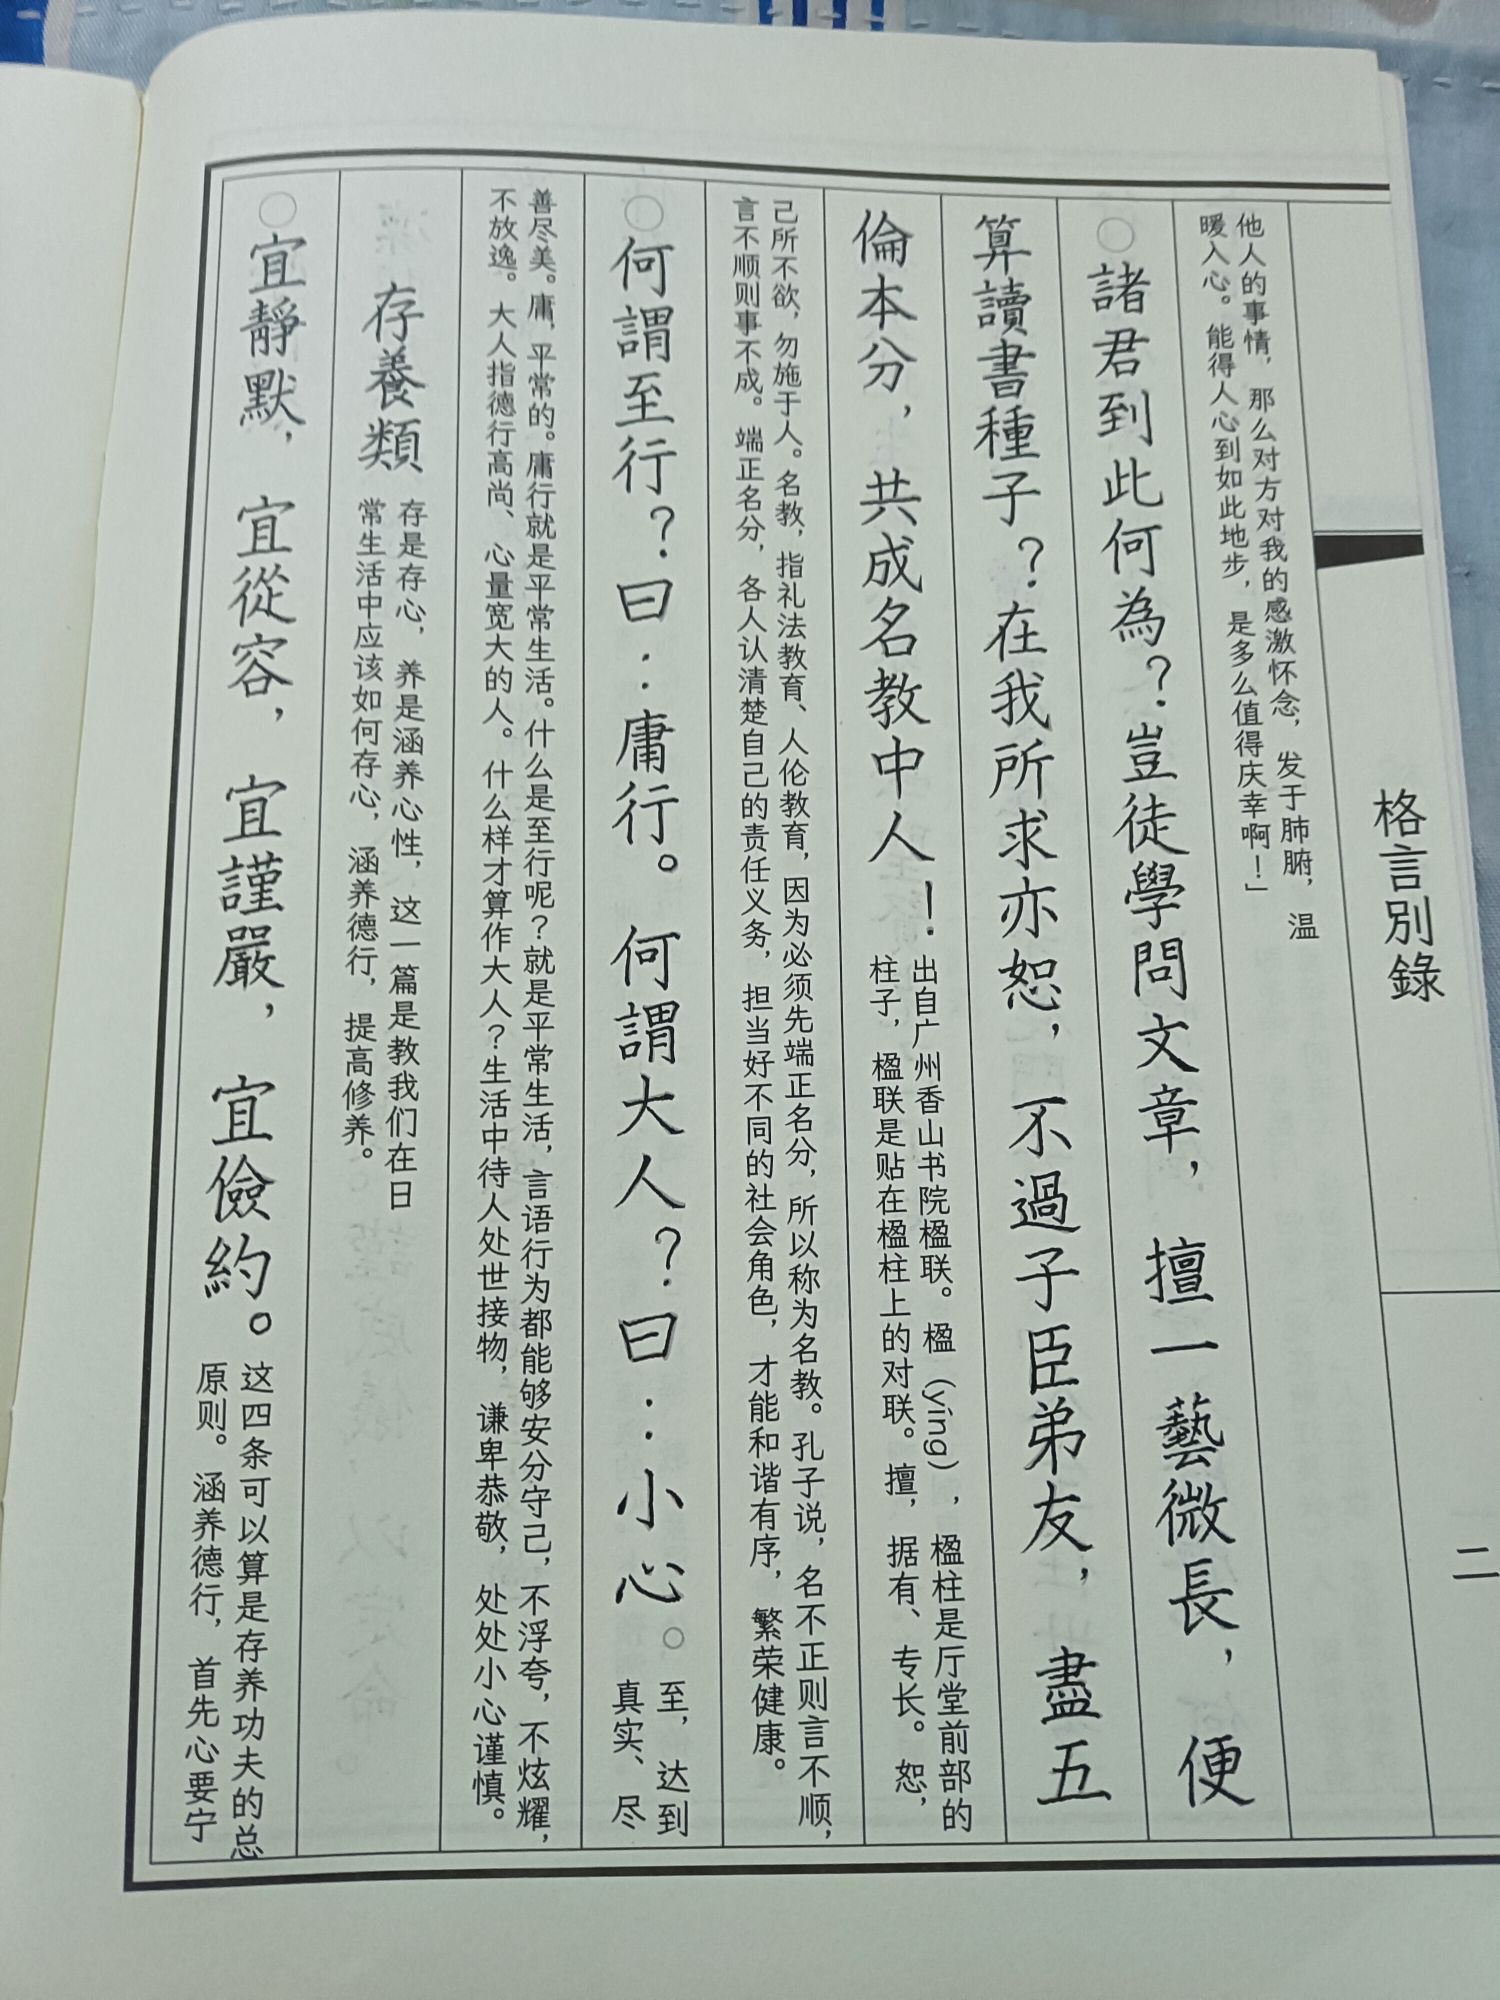 格言別錄
二
他人的事情，那么对方对我的感激怀念，发于肺腑，温
暖入心。能得人心到如此地步，是多么值得庆幸啊！」
○諸君到此何為？豈徒學問文章，擅一藝微長，便
算讀書種子？在我所求亦恕，不過子臣弟友，盡五
倫本分，共成名教中人！
出自广州香山书院楹联。楹（yíng），楹柱是厅堂前部的
柱子，楹联是贴在楹柱上的对联。擅，据有、专长。恕，
己所不欲，勿施于人。名教，指礼法教育、人伦教育，因为必须先端正名分，所以称为名教。孔子说，名不正则言不顺，
言不顺则事不成。端正名分，各人认清楚自己的责任义务，担当好不同的社会角色，才能和谐有序，繁荣健康。
○何謂至行？曰：庸行。何謂大人？曰：小心。
至，达到
真实、尽
善尽美。庸，平常的。庸行就是平常生活。什么是至行呢？就是平常生活，言语行为都能够安分守己，不浮夸，不炫耀，
不放逸。大人指德行高尚、心量宽大的人。什么样才算作大人？生活中待人处世接物，谦卑恭敬，处处小心谨慎。
存養類
存是存心，养是涵养心性，这一篇是教我们在日
常生活中应该如何存心，涵养德行，提高修养。
○宜靜默，宜從容，宜謹嚴，宜儉約。
这四条可以算是存养功夫的总
原则。涵养德行，首先心要宁